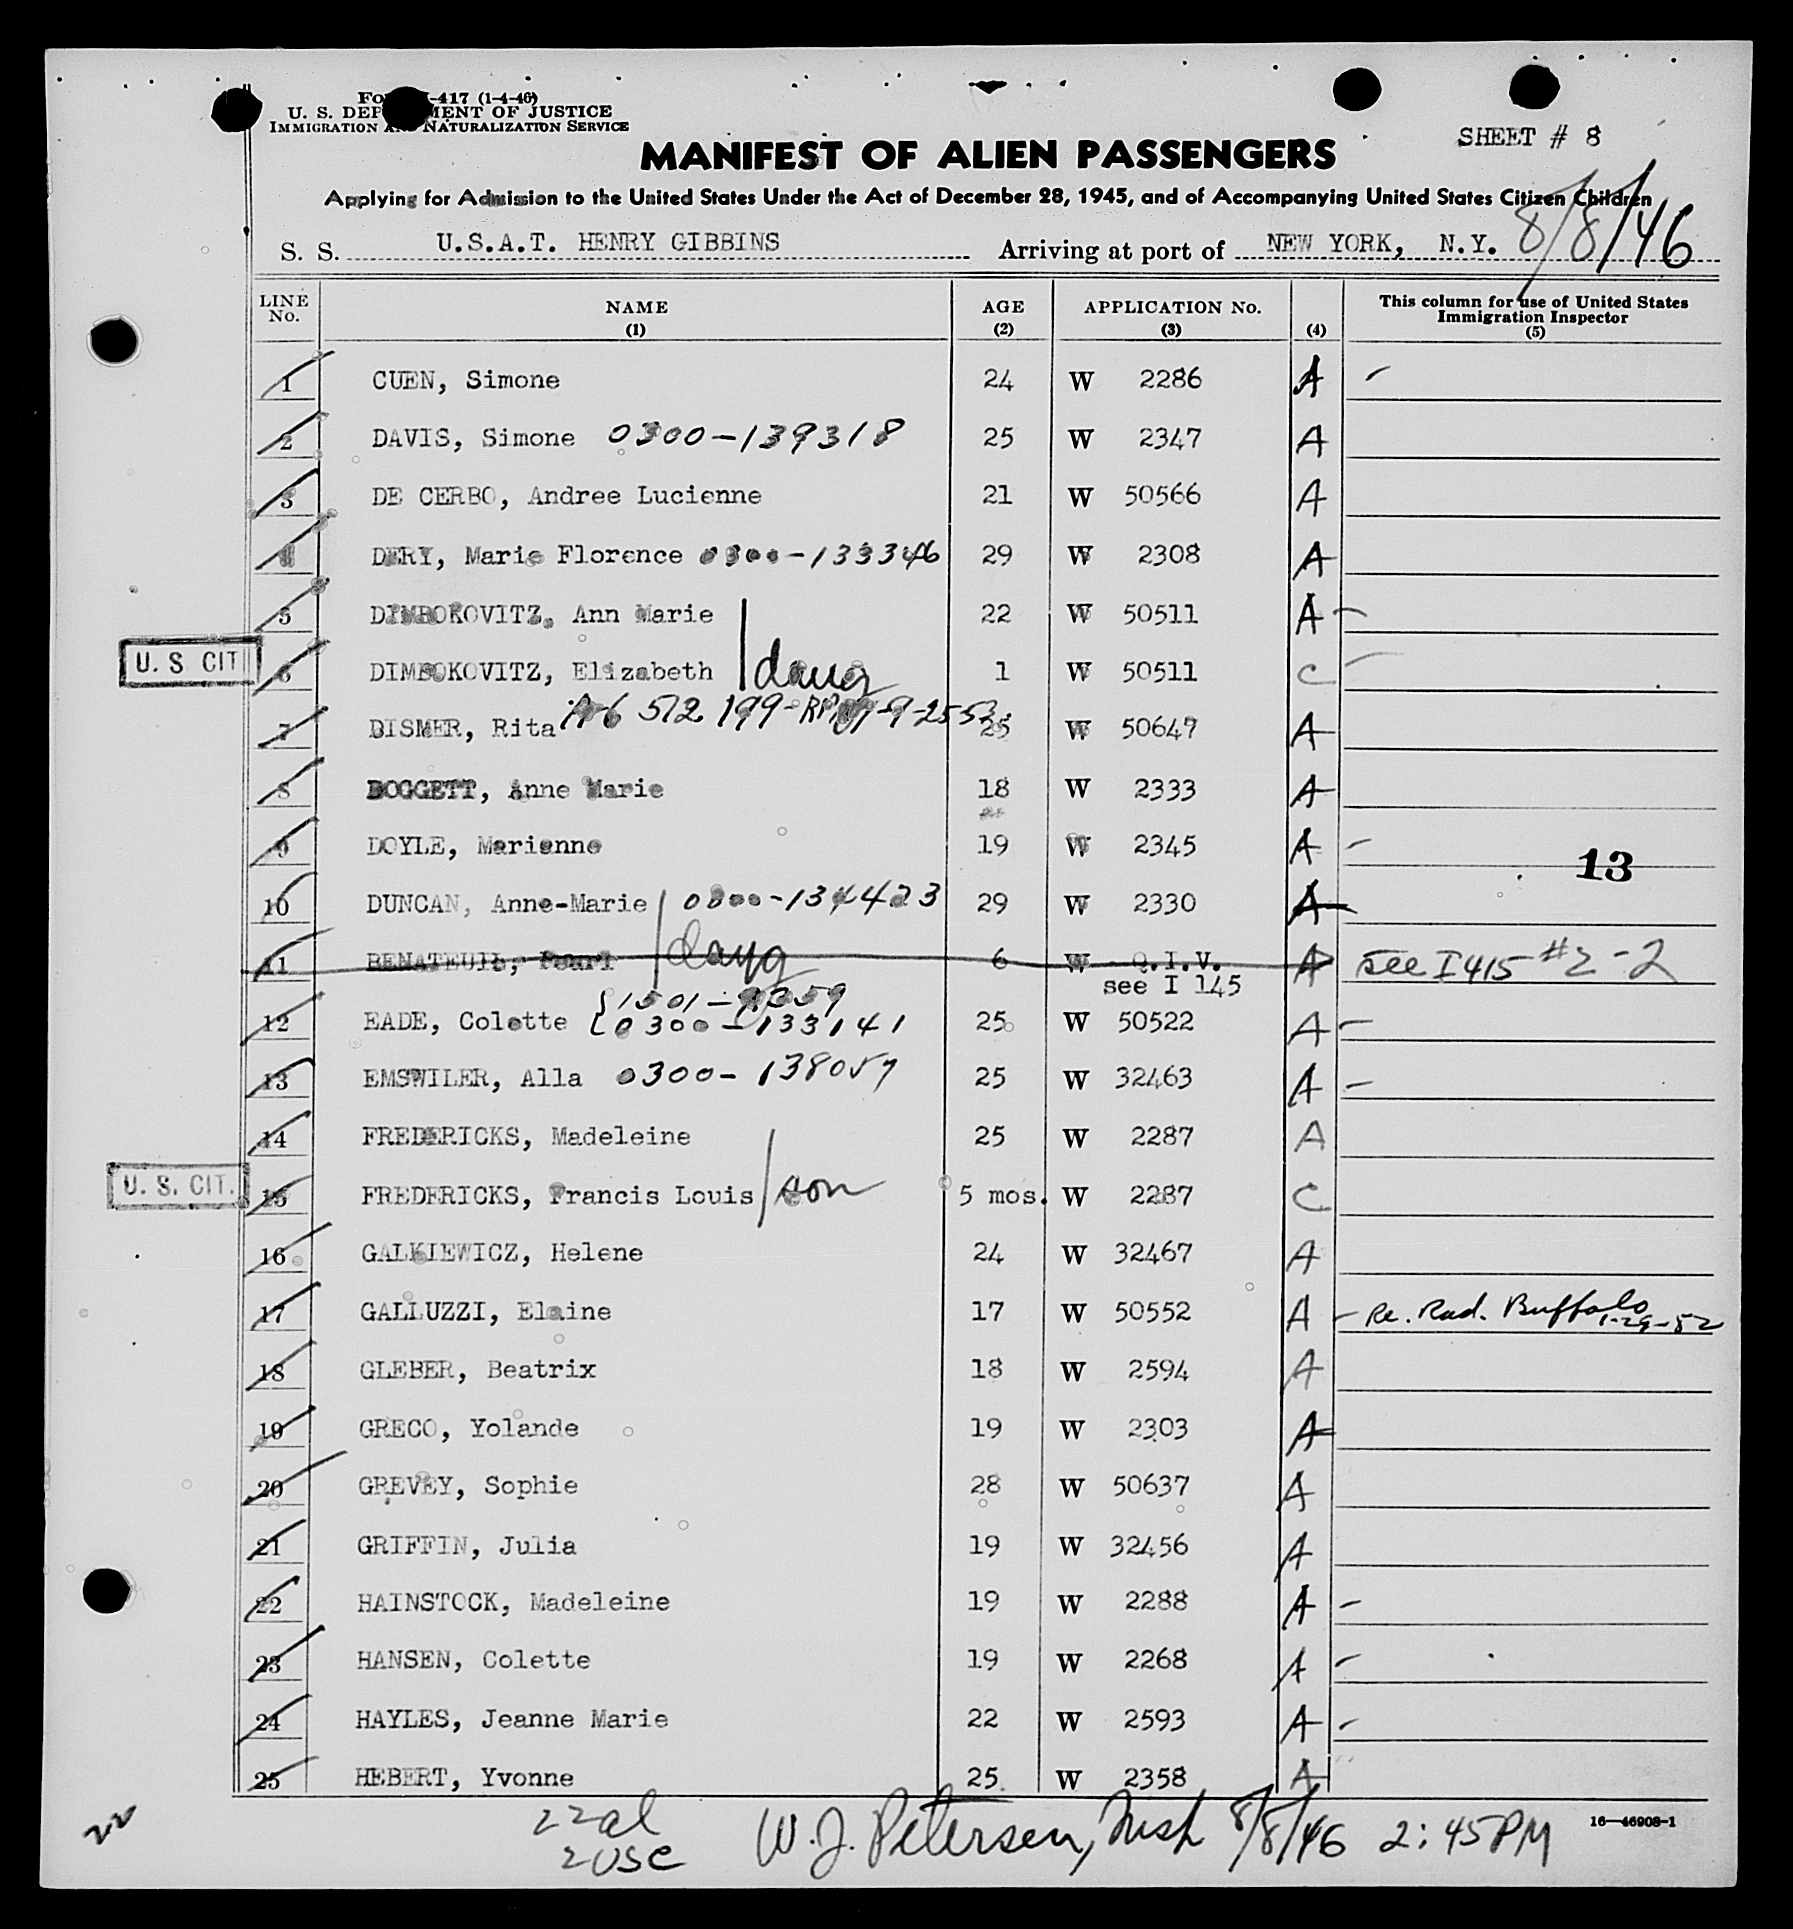 U. S. DEP MENT OF JUSTICE
IMMIGRATION AND NATURALIZATION SERVICE
-417 (1-4-46)
SHEET # 8
MANIFEST OF ALIEN PASSENGERS
Applying for Admission to the United States Under the Act of December 28, 1945, and of Accompanying United States Citizen Children
S. S. U.S.A.T. HENRY GIBBINS Arriving at port of NEW YORK, N.Y. 8/8/46
LINE No. NAME (1) AGE (2) APPLICATION No. (3) (4) This column for use of United States Immigration Inspector (5)
1 CUEN, Simone 24 W 2286 A -
2 DAVIS, Simone 0300-139318 25 W 2347 A
3 DE CERBO, Andree Lucienne 21 W 50566 A
4 DERY, Marie Florence 0300-133346 29 W 2308 A
5 DIMBOKOVITZ, Ann Marie 22 W 50511 A -
U. S CIT 6 DIMBOKOVITZ, Elizabeth daug 1 W 50511 C -
7 DISMER, Rita A-6 512 199 25 W 50647 A
8 DOGGETT, Anne Marie 18 W 2333 A
9 DOYLE, Marianne 19 W 2345 A -
13
10 DUNCAN, Anne-Marie 0300-134423 29 W 2330 A
11 BENATEUIL, Pearl daug 6 W Q.I.V. A See I 415 #2-2
see I 145
12 EADE, Colette {1501-9359 {0300-133141 25 W 50522 A -
13 EMSWILER, Alla 0300-138057 25 W 32463 A -
14 FREDERICKS, Madeleine 25 W 2287 A
U. S. CIT. 15 FREDERICKS, Francis Louis son 5 mos. W 2287 C
16 GALKIEWICZ, Helene 24 W 32467 A
17 GALLUZZI, Elaine 17 W 50552 A - Re. Rad. Buffalo 1-29-52
18 GLEBER, Beatrix 18 W 2594 A
19 GRECO, Yolande 19 W 2303 A
20 GREVEY, Sophie 28 W 50637 A
21 GRIFFIN, Julia 19 W 32456 A
22 HAINSTOCK, Madeleine 19 W 2288 A -
23 HANSEN, Colette 19 W 2268 A -
24 HAYLES, Jeanne Marie 22 W 2593 A -
25 HEBERT, Yvonne 25 W 2358 A
22 22al W. J. Petersen, Insp 8/8/46 2:45 PM 16—46908-1
2 USC